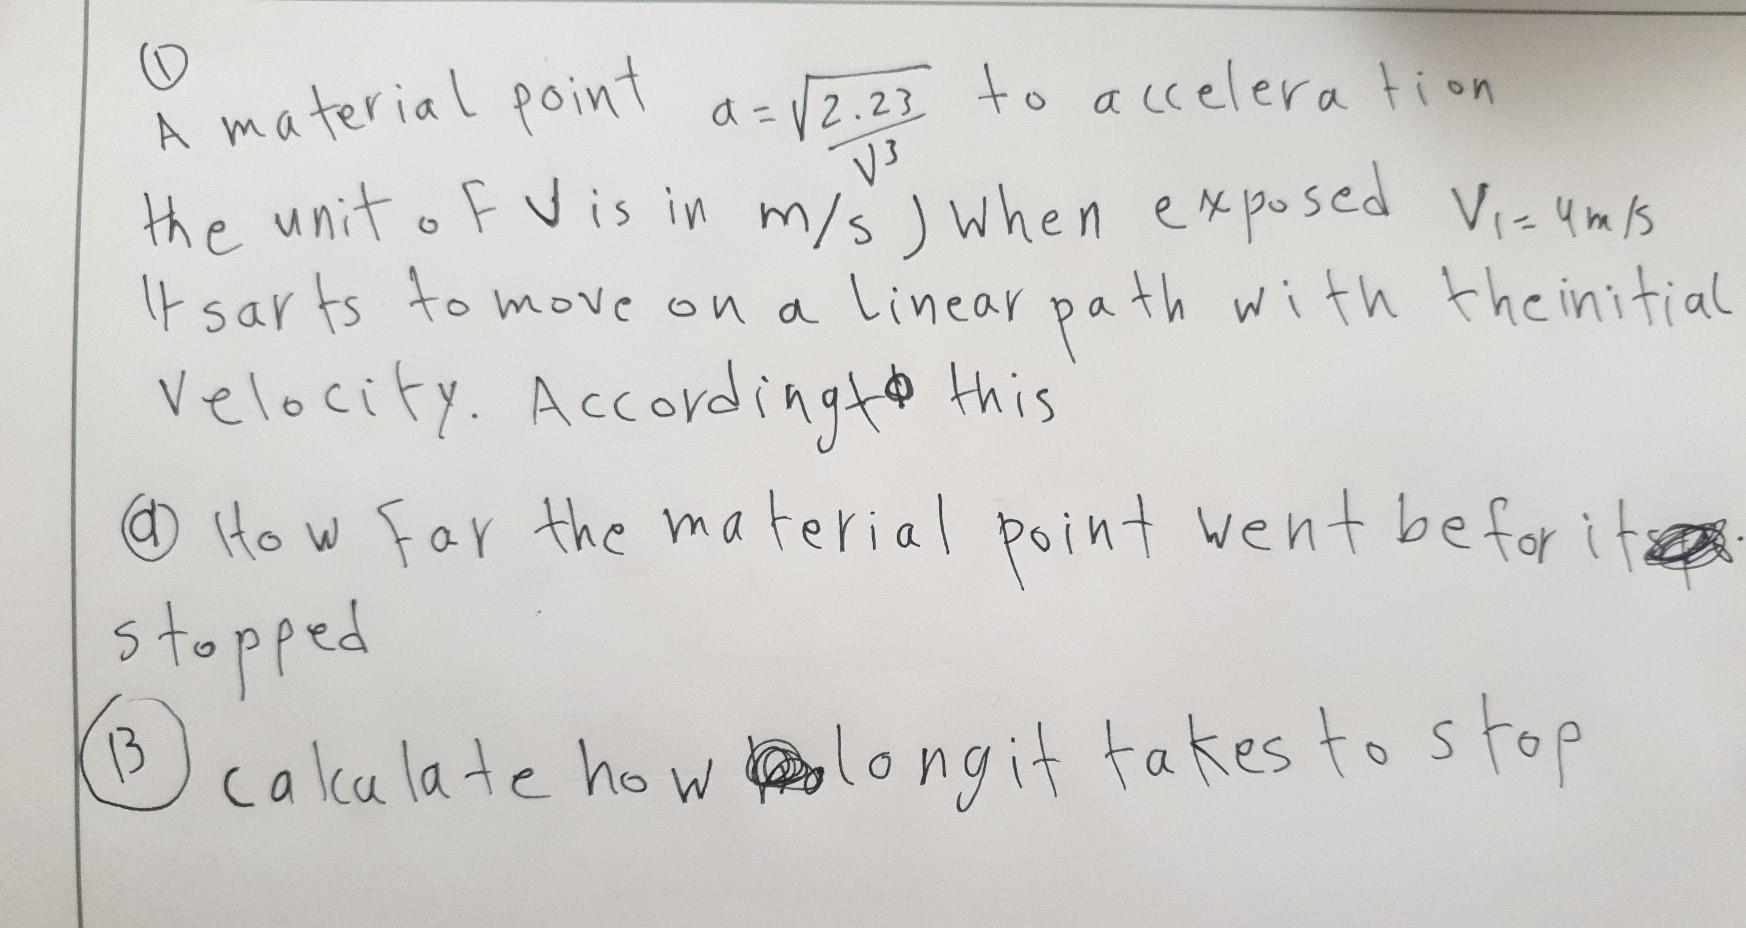 ①
A material point a = √2.23/V³ to acceleration
the unit of V is in m/s) when exposed V₁=4m/s
It sarts to move on a linear path with the initial
Velocity. According to this
ⓐ How far the material point went befor it
stopped
Ⓑ calculate how long it takes to stop